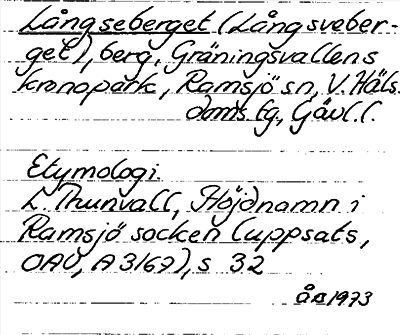 Långseberget (Långsveber-
get), berg, Gräningsvallens
kronopark, Ramsjö sn, V. Häls.
doms tg., Gävl. l.
Etymologi.
L. Thunvall, Höjdnamn i
Ramsjö socken (uppsats,
OAU, A 3167), s 32
åå 1973